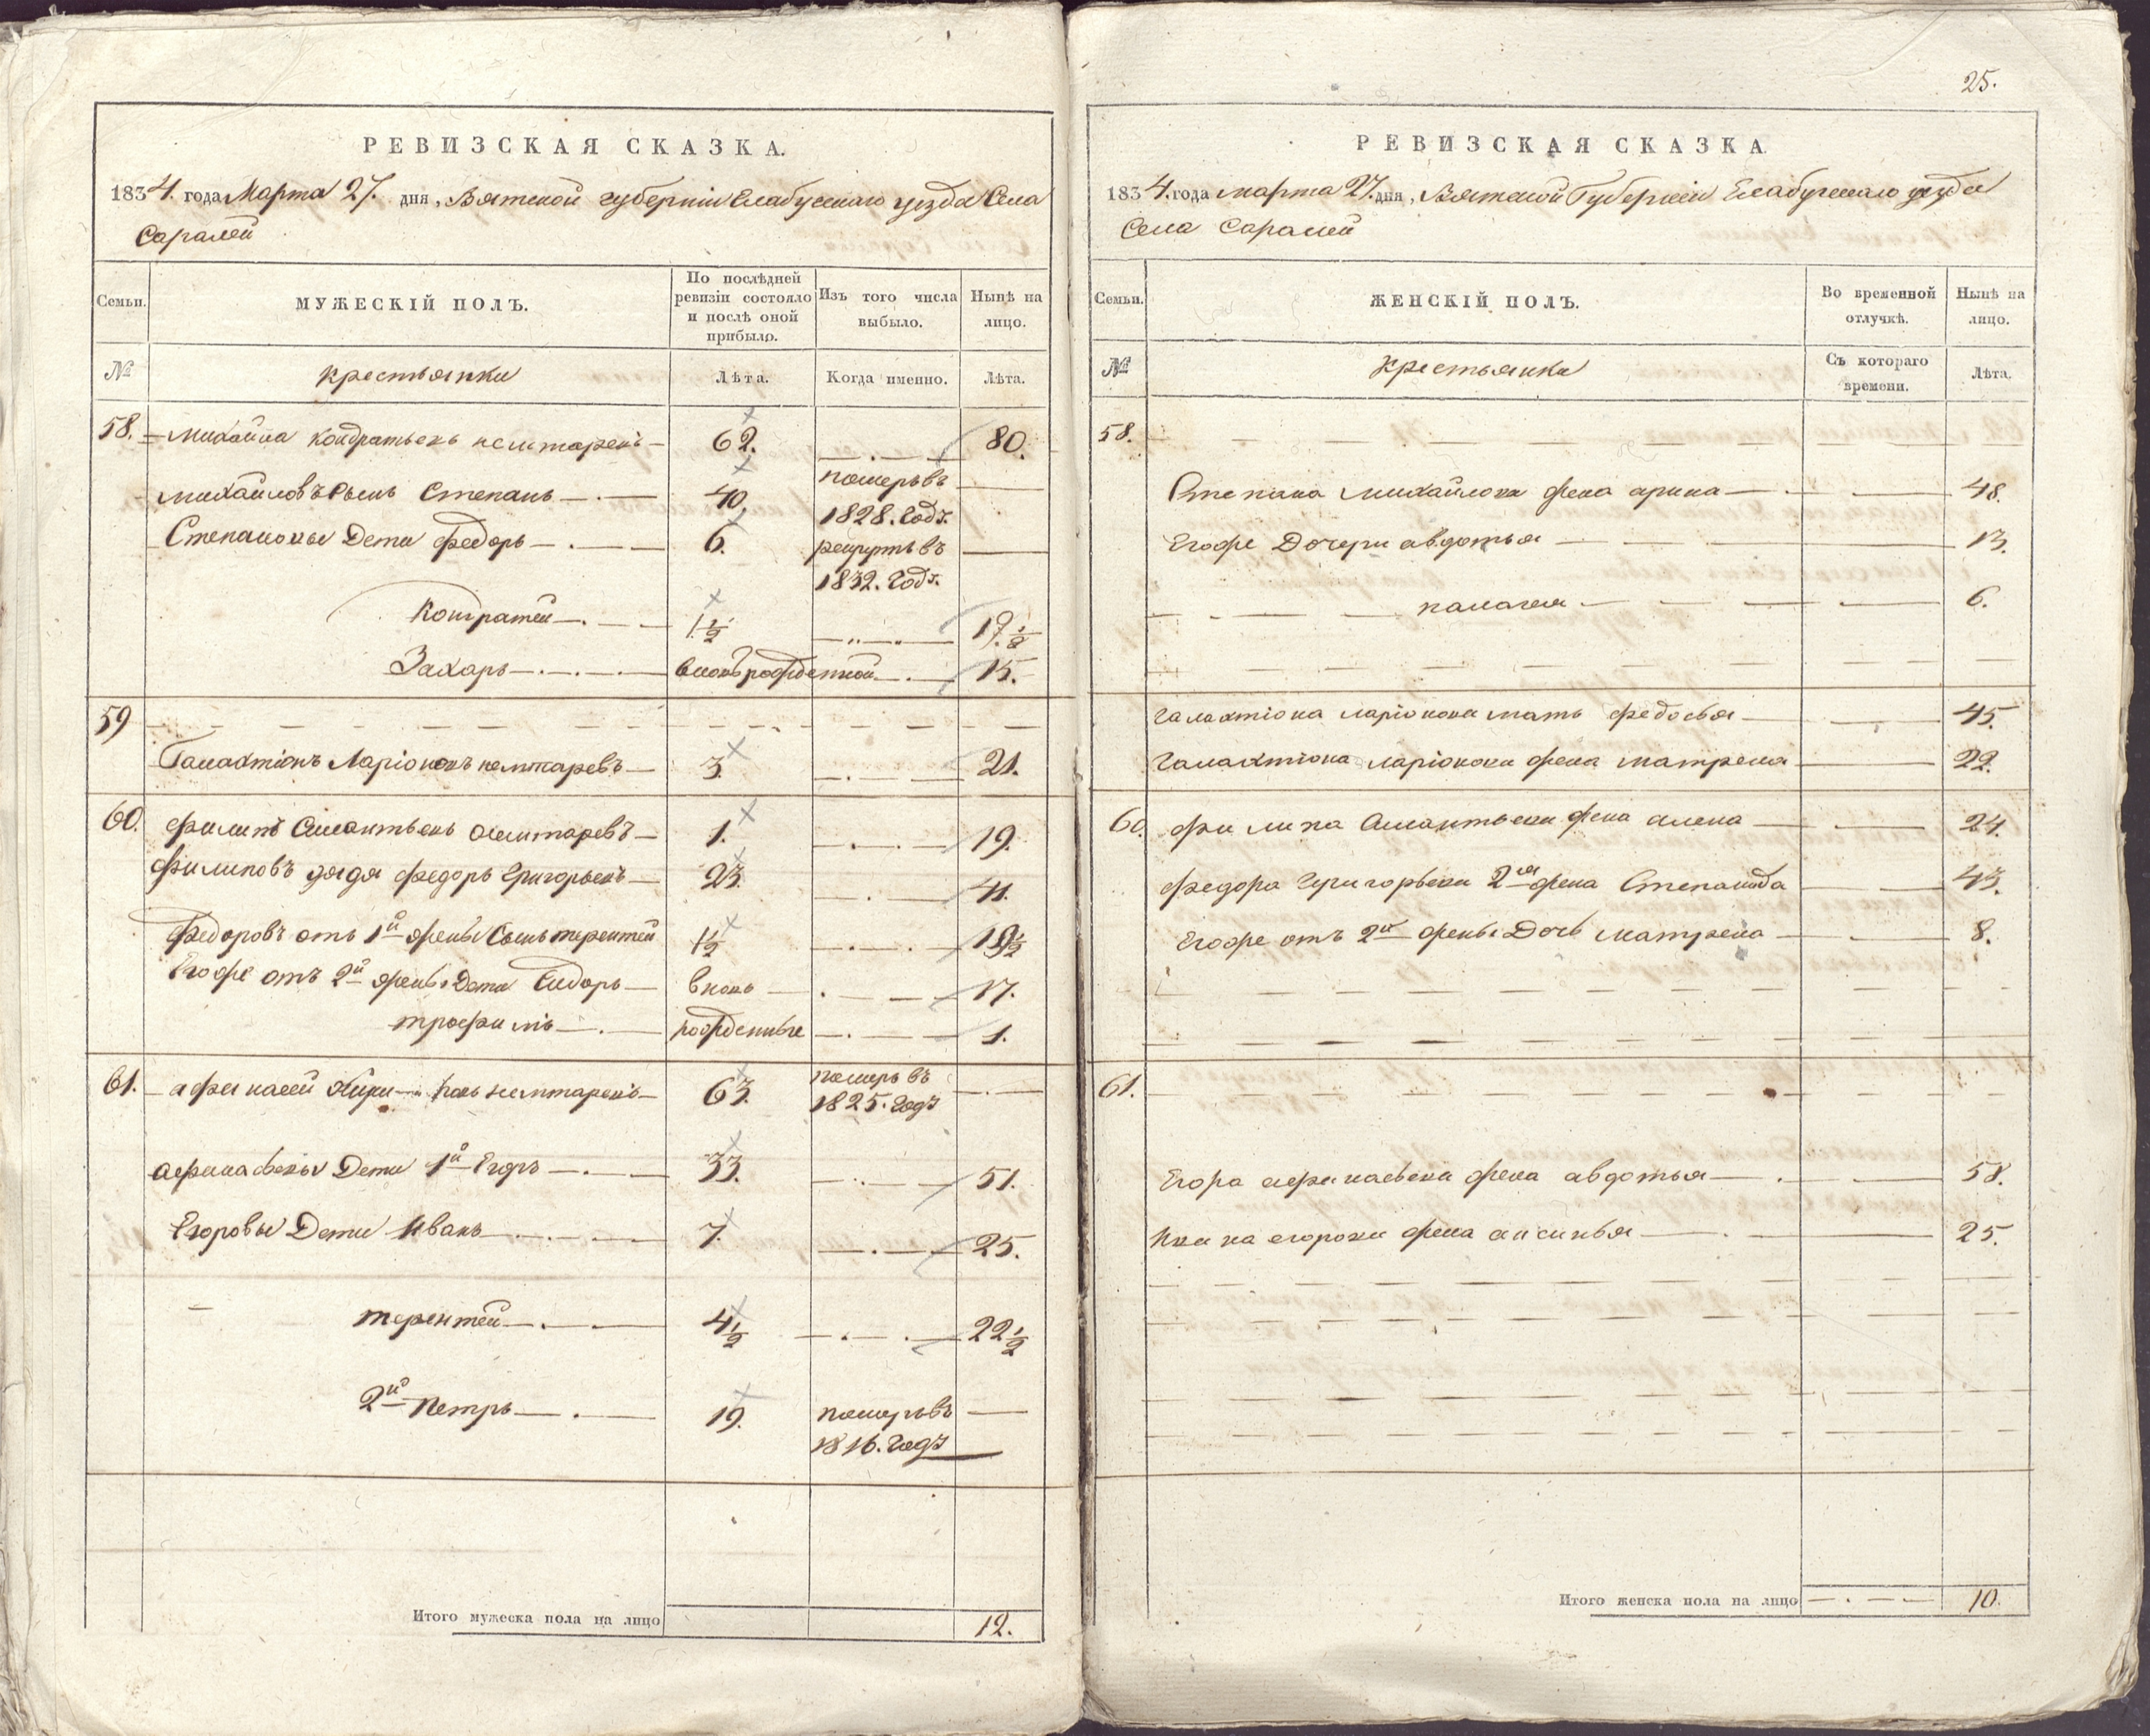 РЕВИЗСКАЯ СКАЗКА.
1834. года Марта 27. дня, Вятской губернiи Елабускаго уезда Села
Саралей
Семьи. МУЖЕСКІЙ ПОЛЪ. По послѣдней ревизіи состояло и послѣ оной прибыло. Изъ того числа выбыло. Нынѣ на лицо.
№ Лѣта. Когда именно. Лѣта.
58. Михайла Кондратьевъ 62. 80.
Михайловъ Сынъ Степанъ 40. померъ въ
1828. Годъ.
Степановы Дети Федоръ 6. рекрутъ въ
1832. Годъ.
Кондратей 1 1/2 19 1/2
Захаръ вновь рожденной 15.
59
Галактiонъ Ларiоновъ 3. 21.
60. Филипъ 1. 19.
Филиповъ дядя Федоръ Григорьевъ 23. 41.
Федоровъ отъ 1й жены Сынъ терентей 1 1/2 19 1/2
Егоже отъ 2й жены Дети Сидоръ вновь 17.
трофимъ рожденные 1.
61. Афанасей 63. померъ въ
1825. Годъ
Афанасьевы Дети 1й Егоръ 33. 51.
Егоровы Дети Иванъ 7. 25.
терентей 4 1/2 22 1/2
2й Петръ 19. померъ въ
1816. Годъ
Итого мужеска пола на лицо 12.
25.
РЕВИЗСКАЯ СКАЗКА
1834. года марта 27. дня, Вятской Губернiи Елабугскаго уезда
Села Саралей
Семьи. ЖЕНСКІЙ ПОЛЪ. Во временной отлучкѣ. Нынѣ на лицо.
№ Крестьянки Съ котораго времени. Лѣта.
58.
Степана Михайлова жена арина 48.
Егоже Дочери авдотья 13.
палагея 6.
Галактiона ларiонова мать федосья 45.
Галактiона ларiонова жена матрена 22.
60. филипа жена алена 24.
федора Григорьева 2я жена Степанида 43.
Егоже отъ 2й жены Дочь матрена 8.
61.
Егора афанасьева жена авдотья 58.
Ивана егорова жена аксинья 25.
Итого женска пола на лицо 10.